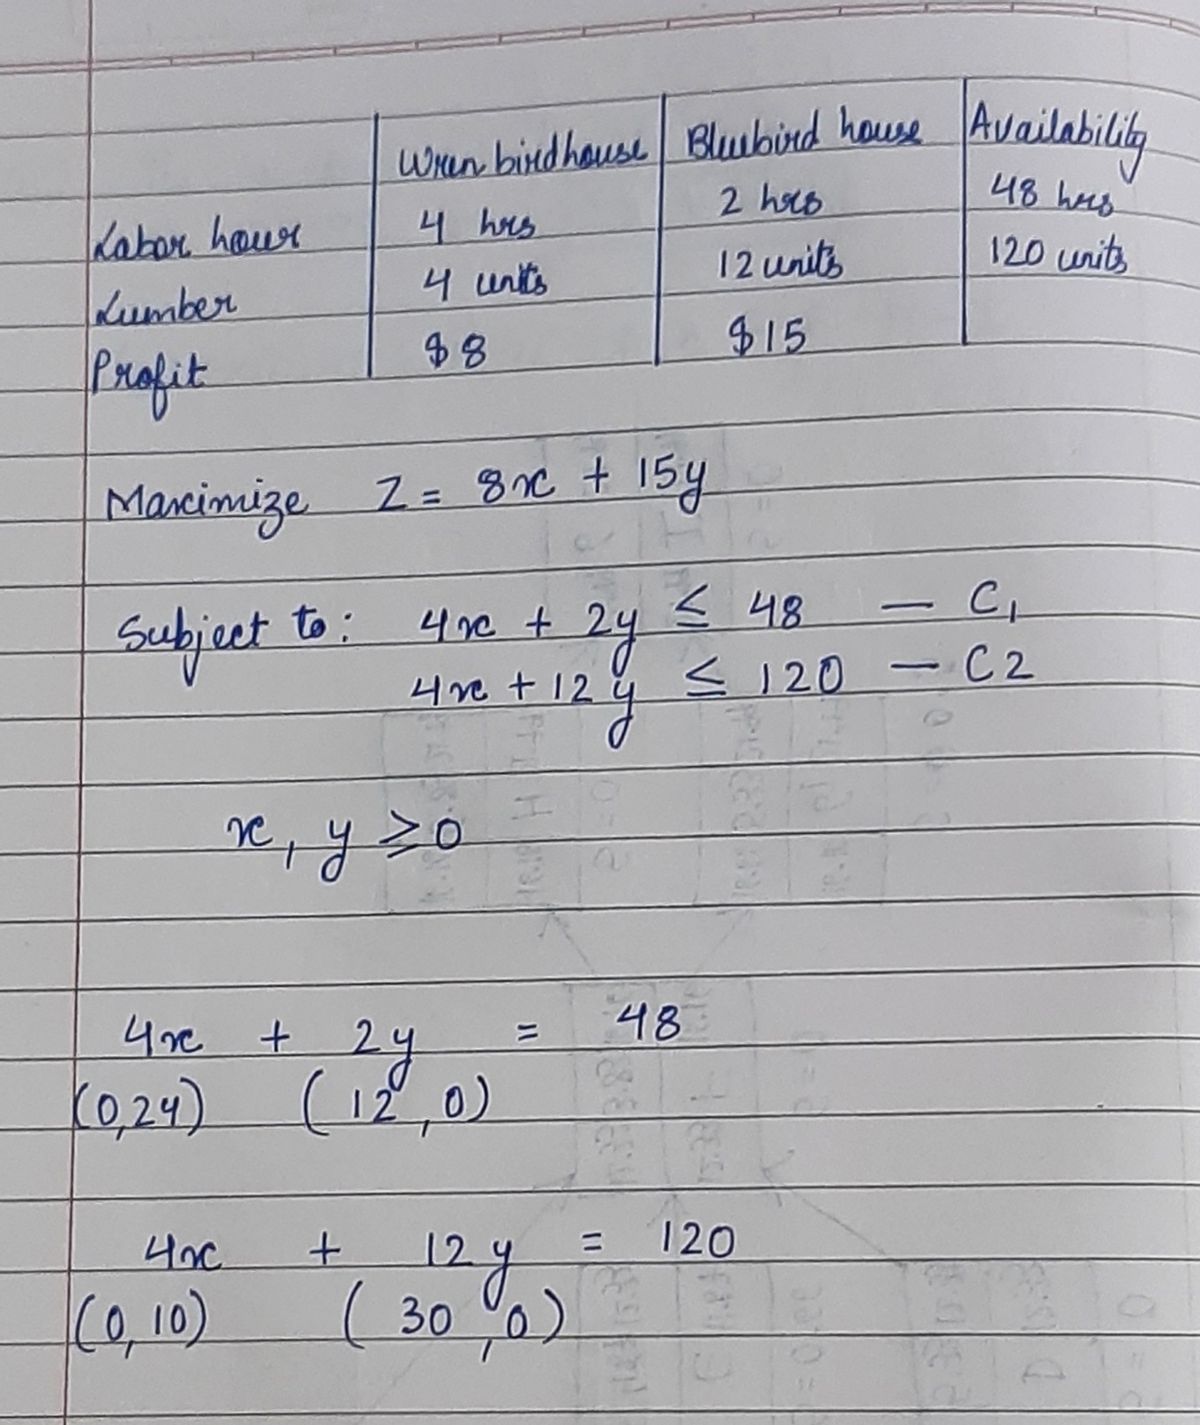 Wren birdhouse Bluebird house Availability
Labor hour 4 hrs 2 hrs 48 hrs
Lumber 4 units 12 units 120 units
Profit $8 $15
Maximize Z = 8x + 15y
Subject to: 4x + 2y ≤ 48 — C₁
4x + 12y ≤ 120 — C2
x, y ≥ 0
4x + 2y = 48
(0,24) (12,0)
4x + 12y = 120
(0,10) (30,0)